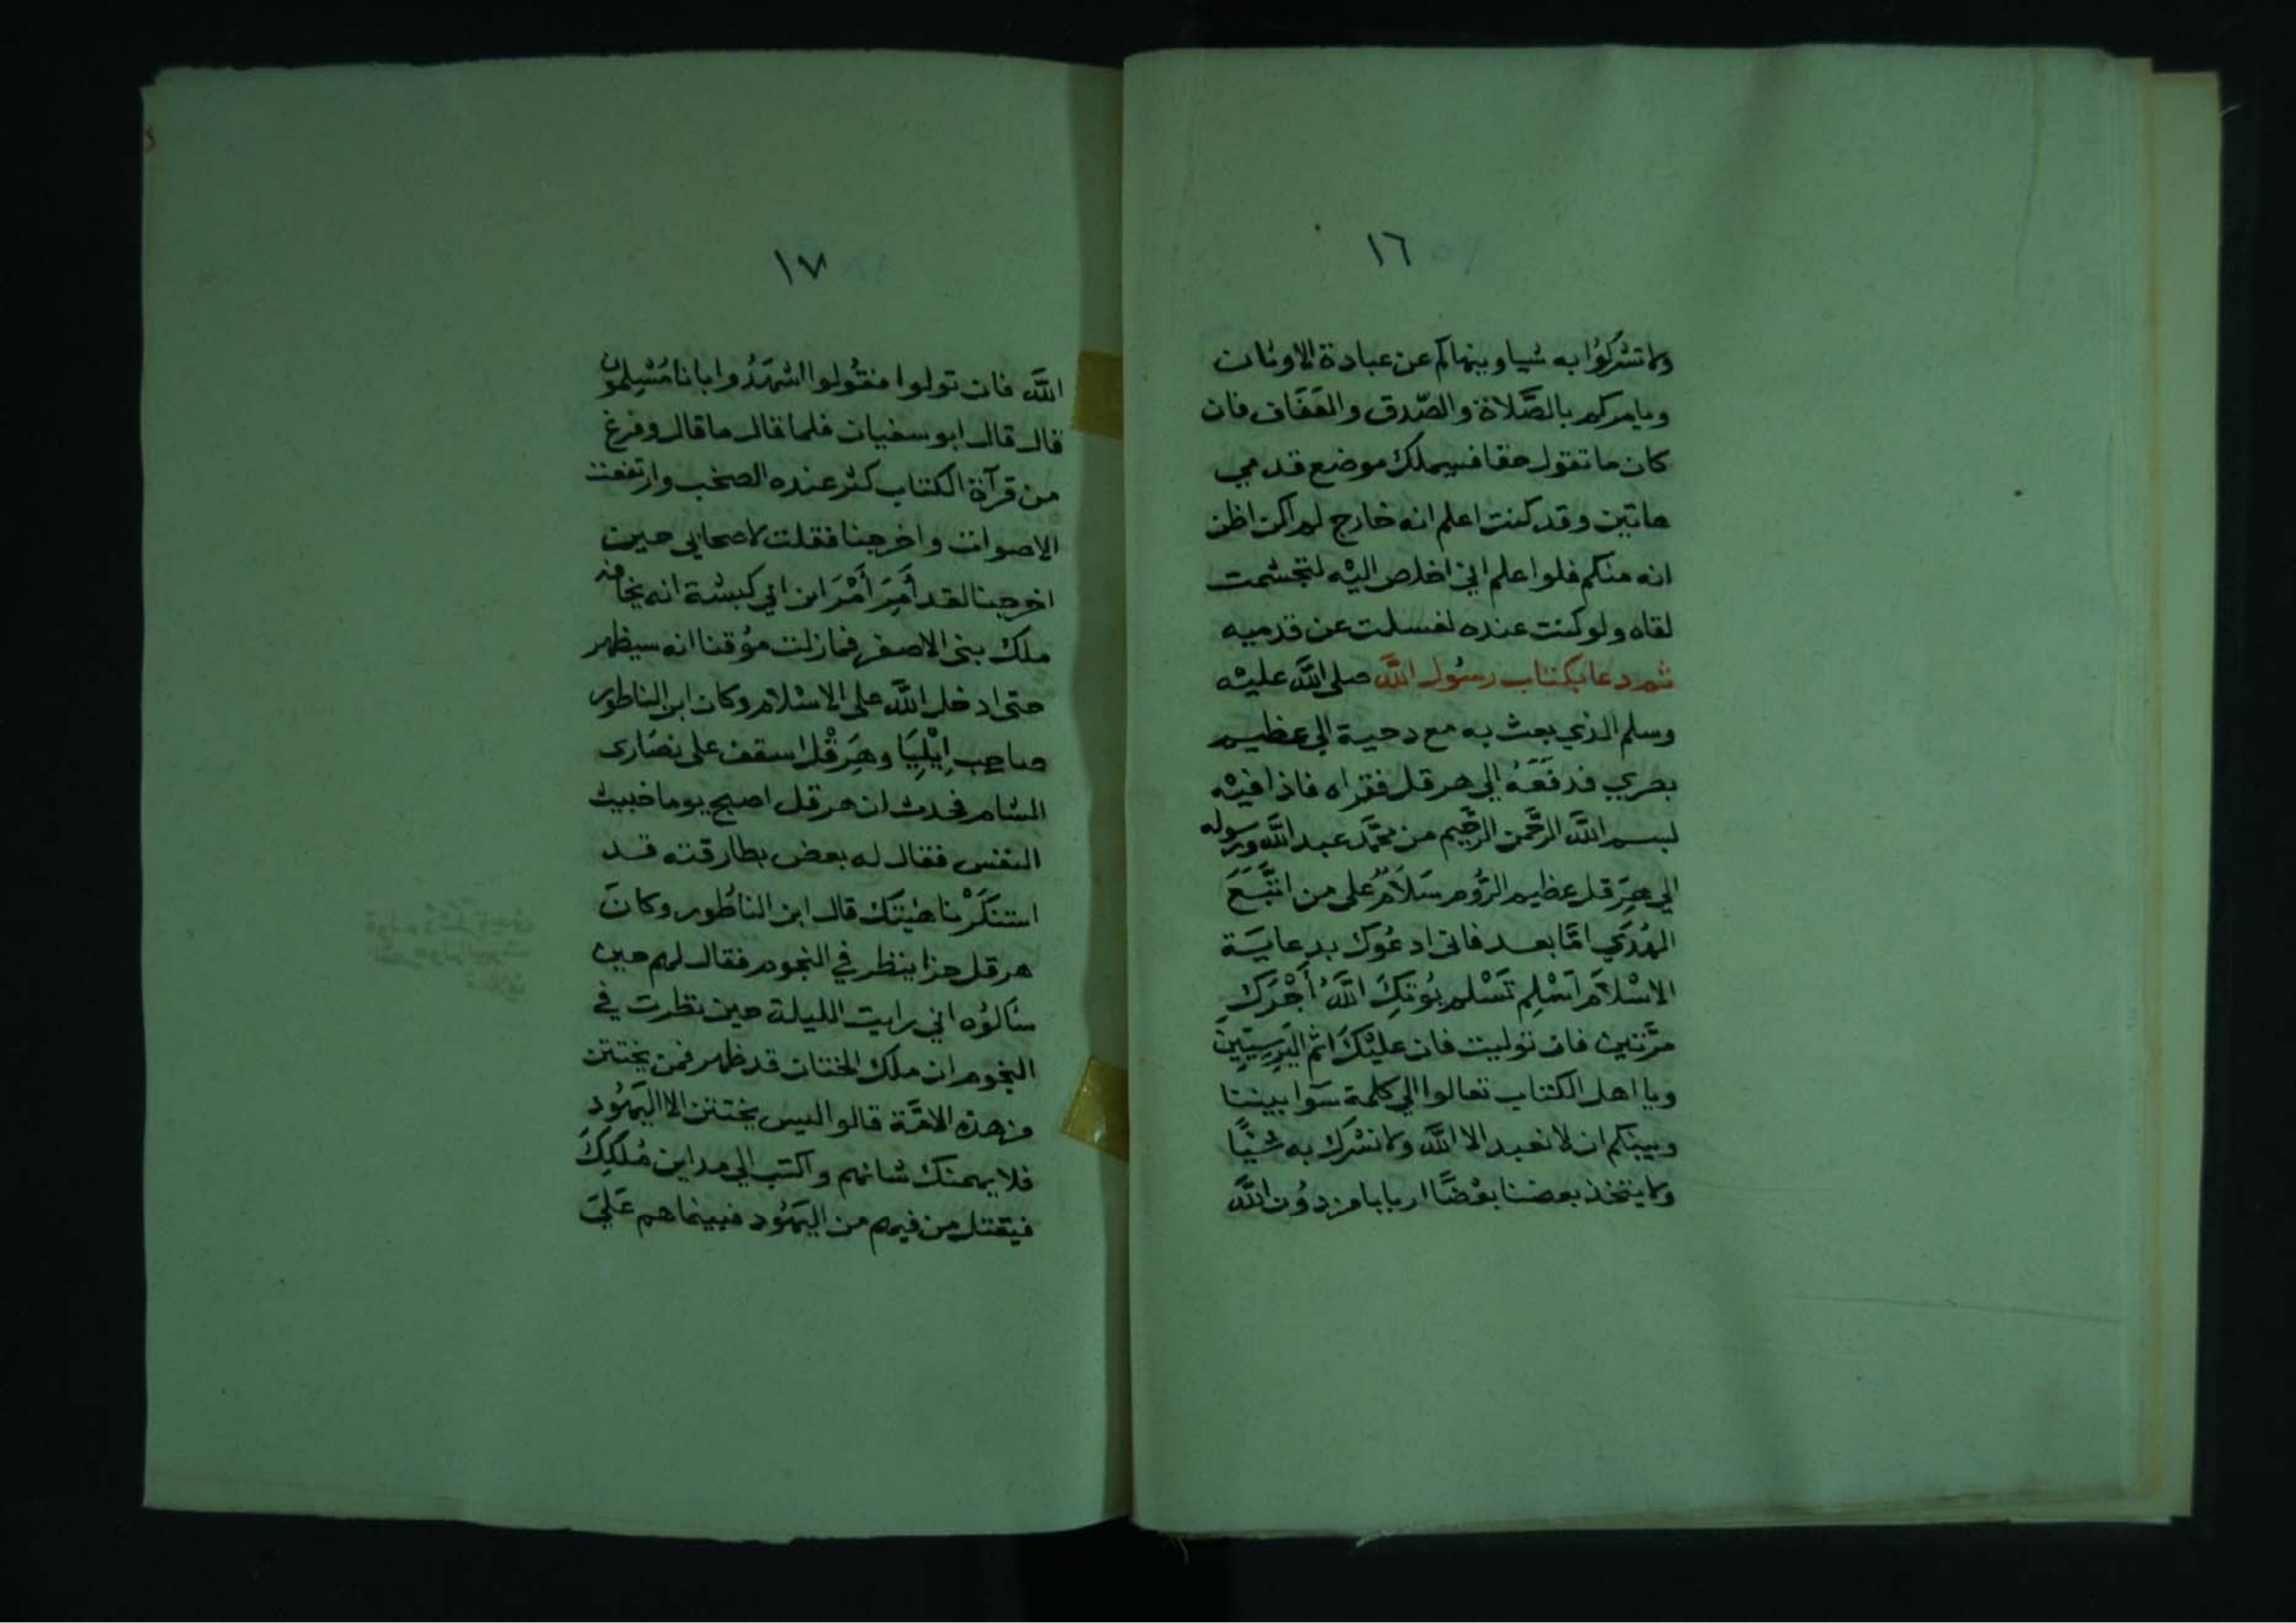 ١٦
ولا تشركُوُا به شيا وينهاكم عن عبادة الاوثان
ويامركم بالصَّلاة والصّدق والعَفَاف فان
كان ما تقول حقا فسيملك موضع قدمي
هاتين وقد كنت اعلم انه خارج لم اكن اظن
انه منكم فلوا علم اني اخلص اليْه لتجشمت
لقاه ولو كنت عنده لغسلت عن قدميه
ثم دعا بكتاب رسُول اللَّه صلى اللَّه عليْه
وسلم الذي بعث به مع دحية الي عظيم
بصري فدفَعَهُ الي هرقل فقراه فاذا فيْه
بسم اللَّه الرَّحمن الرَّحيم من محَّمد عبد اللَّه ورسوله
الي هِرَقل عظيم الرُّوم سَلَامٌ على من اتَّبَعَ
الهُدَي امَّا بعد فانى ادعُوك بدعايَة
الاسْلاَم اَسْلِم تَسْلم يُوتِكَ اللَّهُ أَجْرَكَ
مرَّتين فان توليت فان عليْكَ اثم اليَرِسِيّينَ
ويا اهل الكتاب تعالوا الي كلمة سَوا بيننا
وبينكم ان لا نعبد الا اللَّه ولا نشرك به شيْاً
ولا يتخذ بعضنا بعْضًا اربابا من دوُن اللَّه
١٧
اللَّه فان تولوا فقُولوا اشهَدُوا بانا مُسْلِمُون
قال قال ابو سفيان فلما قال ما قال وفرغ
من قرآة الكتاب كثر عنده الصخب وارتفعت
الاصوات واخرجنا فقلت لاصحابي حين
اخرجنا لقد أَمِرَ أَمْرَ ابن ابي كبشة انه يخافه
ملك بنى الاصفر فما زلت مُوقنا انه سيظهر
حتى ادخل اللَّه على الاسْلام وكان ابن الناطور
صاحب اِيْلِيَا وهِرَقْل اسقف على نصَارى
الشام يحدث ان هرقل اصبح يوما خبيث
النفس فقال له بعض بطارقته قد
استنكَرْنا هيْتك قال ابن الناطُور وكانَ
هرقل حزا ينظر في النجوم فقال لهم حين
سَالوُه اني رايت الليلة حين نظرت في
النجوم ان ملك الختان قد ظهر فمن يختتن
من هذه الامَّة قالو اليس يختتن الا اليَهُود
فلا يهمنك شانهم واكتب الي مداين مُلككَ
فيقتل من فيهم من اليَهُود فبينما هم عَلَي